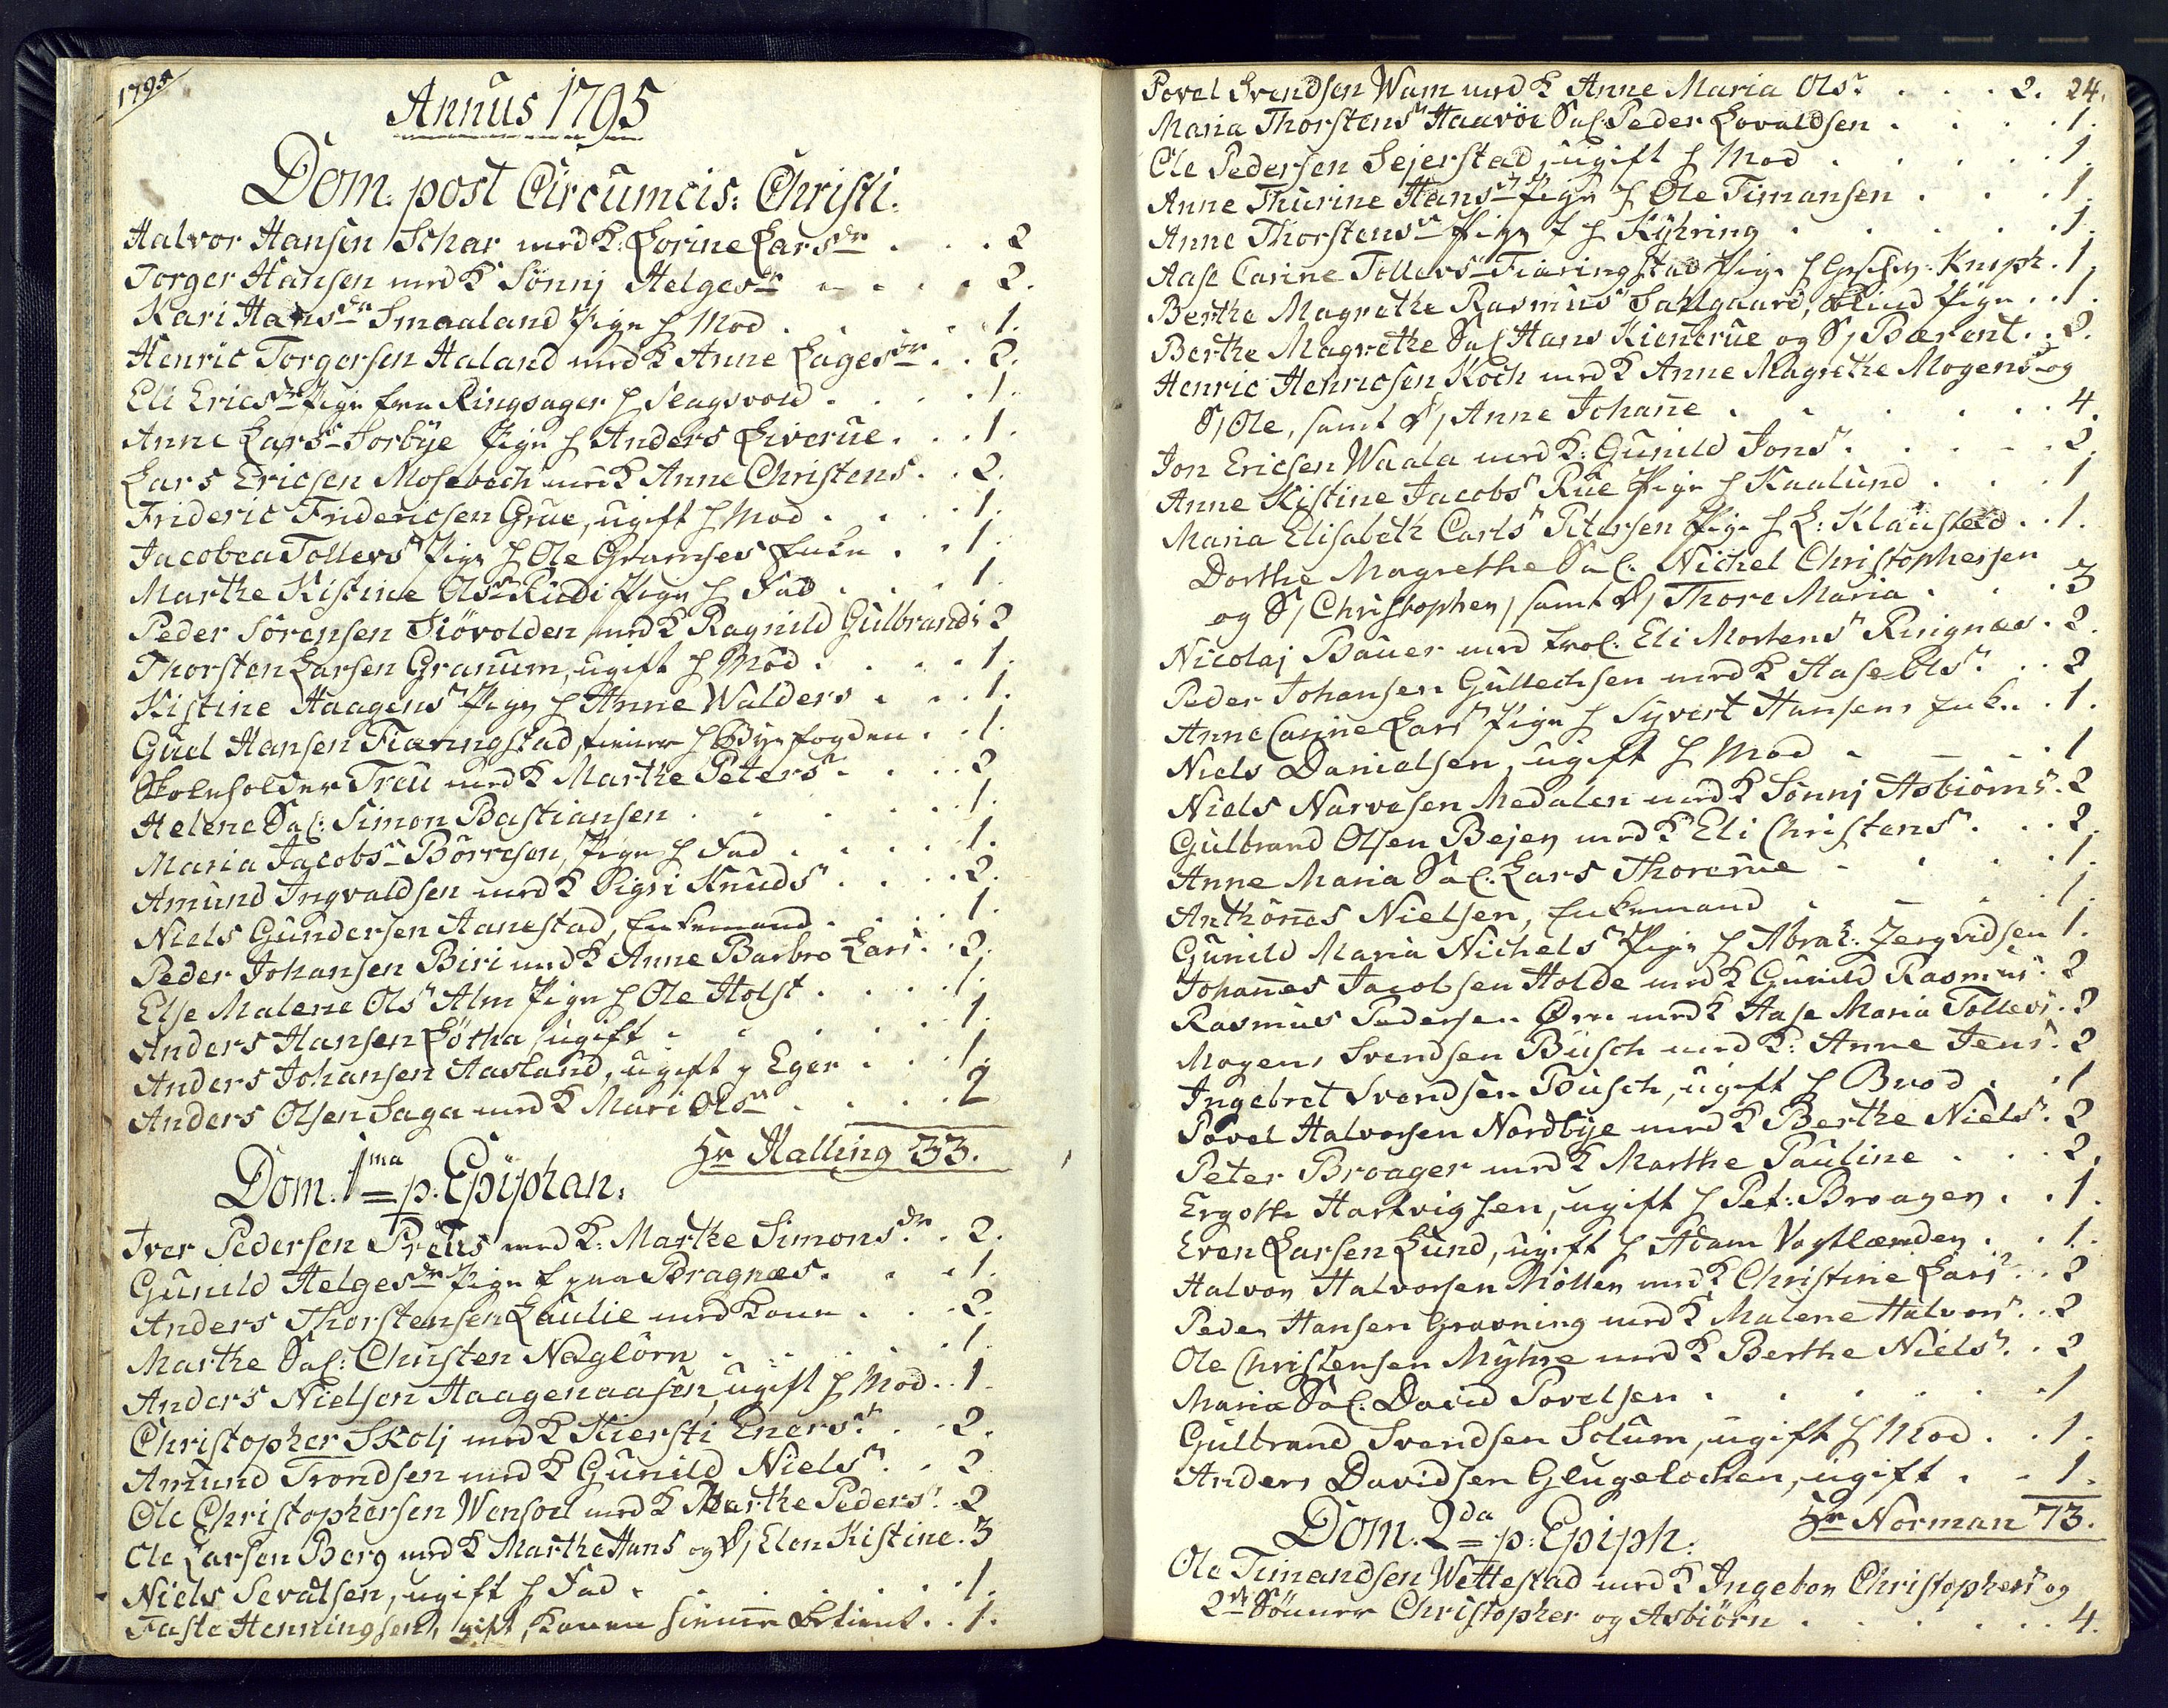 1795
Annus 1795
Dom. post Circumcis: Christi.
Halvor Hansen Schar med K: Lorine Larsdr . . . 2
Torger Hansen med K Sönnj Helgesdr . . . . 2.
Kari Hansdr Smaaland Pige h Mod . . . . . 1.
Henric Torgersen Haland med K Anne Lagesdr . . 2.
Eli Ericsdr Pige fra Ringsager h Slagsvold . . . . 1.
Anne Larsdr Sorbÿe Pige h Anders Liverüe . . . 1.
Lars Ericsen Mosebech med K Anne Christens . . 2.
Frideric Fridericsen Grüe, ugift h Mod . . . . 1.
Jacobea Tollevsr Pige h Ole Gramses Enke . . 1.
Marthe Kistine Olsdr Rüdi Pige h Fad . . . . 1.
Peder Sörensen Siövolden med K Ragnild Gülbrands 2
Thorsten Larsen Granum, ugift h Mod . . . . 1.
Kistine Haagensr Pige h Anne Walders . . . 1.
Gual Hansen Fiæringstad, tiener h Byefogden . . 1.
Skoleholder Treü med K Marthe Petersr . . . . 2
Helene Sal: Simon Bastiansen . . . . . 1.
Maria Jacobsr Börresen, Pige h Fad . . . . . 1.
Amund Ingvaldsen med K Sigri Knudsr . . . . 2.
Niels Gundersen Aanestad, Enkemand . . . . 1.
Peder Johansen Biri med K Anne Barbro Lars . . 2.
Else Malene Olsr Alm Pige h Ole Holst . . . . 1.
Anders Hansen Lötha ugift . . . . . 1.
Anders Johansen Aasland, ugift p Eger . . . 1.
Anders Olsen Saga med K Mari Olsdr . . . . 2
Hr Halling 33.
Dom. 1ma p. Epiphan.
Iver Pedersen Preüs med K: Marthe Simonsdr . . 2.
Gunild Helgesdr Pige f paa Bragnæs . . . 1.
Anders Thorstensen Laulie med Kone . . . 2.
Marthe Sal: Christen Næglörn . . . . 1.
Anders Nielsen Haagenaasen, ugift h Mod . . 1.
Christopher Skolj med K Kiersti Enersr . . . 2.
Amund Trondsen med K Gunild Nielsr . . 2
Ole Christophersen Wensoel med K Marthe Peders . . 2
Ole Larsen Berg med K Marthe Hans og D, Elen Kistine . 3
Niels Sevatsen, ugift h Fad . . . . . . 1.
Faste Henningsen, gift, Konen siden betient . . 1.
Povel Svendsen Wam med K Anne Maria Olsr . . . 2. 24.
Maria Thorstensr Haavöe Sal. Peder Lovaldsen . . . . 1.
Ole Pedersen Sejerstad, ugift h Mod . . . . . 1.
Anne Thurine Hansr Pige h Ole Timansen . . . 1.
Anne Thorstensdr Pige f h Kÿhring . . . . . 1.
Aase Carine Tollevsr Fiæringstad Pige h Kniph . 1.
Berthe Magrethe Rasmusr Sahlgaard, Blind Pige . . 1.
Berthe Magrethe Sal Hans Kienerüe og S, Bærent . . 2.
Henric Henricsen Koch med K Anne Magrethe Mogensr og
S, Ole, samt D, Anne Johanne . . . . . . 4.
Jon Ericsen Waala med K: Gunild Jonsr . . . . . 2.
Anne Kistine Jacobsr Rüe Pige h Kaalund . . . 1
Maria Elisabeth Carlsr Petersen Pige h L: Klausted . . 1.
Dorthe Magrethe Sal. Nichel Christophersen
og S, Christopher, samt D, Thore Maria . . . 3
Nicolaj Bauer med trol. Eli Mortensr Ringnæs . 2.
Peder Johansen Gullechsen med K Aase Olsr . . . 2
Anne Carine Larsr Pige h Syvert Hansens Enke . . 1.
Niels Danielsen, ugift h Mod . . . . 1
Niels Narvesen Medalen med K Sönnj Asbiörns . 2
Gulbrand Olsen Bejer med K Eli Christensr . . . 2.
Anne Maria Sal: Lars Thorerüe . . . . . 1.
Anthönnes Nielsen, Enkemand . . . . . 1.
Gunild Maria Nichelsr Pige h Abrah: Jergvidsen 1.
Johannes Jacobsen Holde med K Gunild Rasmus . 2
Rasmus Pedersen Örn med K Aase Maria Tollevs . 2
Mogens Svendsen Büsch med K: Anne Jens . 2
Ingebret Svendsen Büsch, ugift h Brod . . . 1
Povel Halvorsen Nordbÿe med K Berthe Nielsr . 2
Peter Broager med K Marthe Pauline . . . 2.
Ergothe Hartvigsen, ugift h Pet: Broager . . 1.
Even Larsen Lund, ugift h Adam Vogtlænder . . 1.
Halvor Halvorsen Möller med K Christine Larsr . . 2
Peder Hansen Gravning med K Malene Halvorsr . . 2
Ole Christensen Mÿhre med K Berthe Nielsr . . 2
Maria Sal. David Povelsen . . . . . 1
Gulbrand Svendsen Solum, ugift h Mod . . 1.
Anders Davidsen Glugelochen, ugift . . 1.
Hr Norman 73.
Dom. 2da p: Epiph:
Ole Timandsen Wettestad med K Ingebor Christophers og
2de Sönner Christopher og Asbiörn . . . . . . 4.